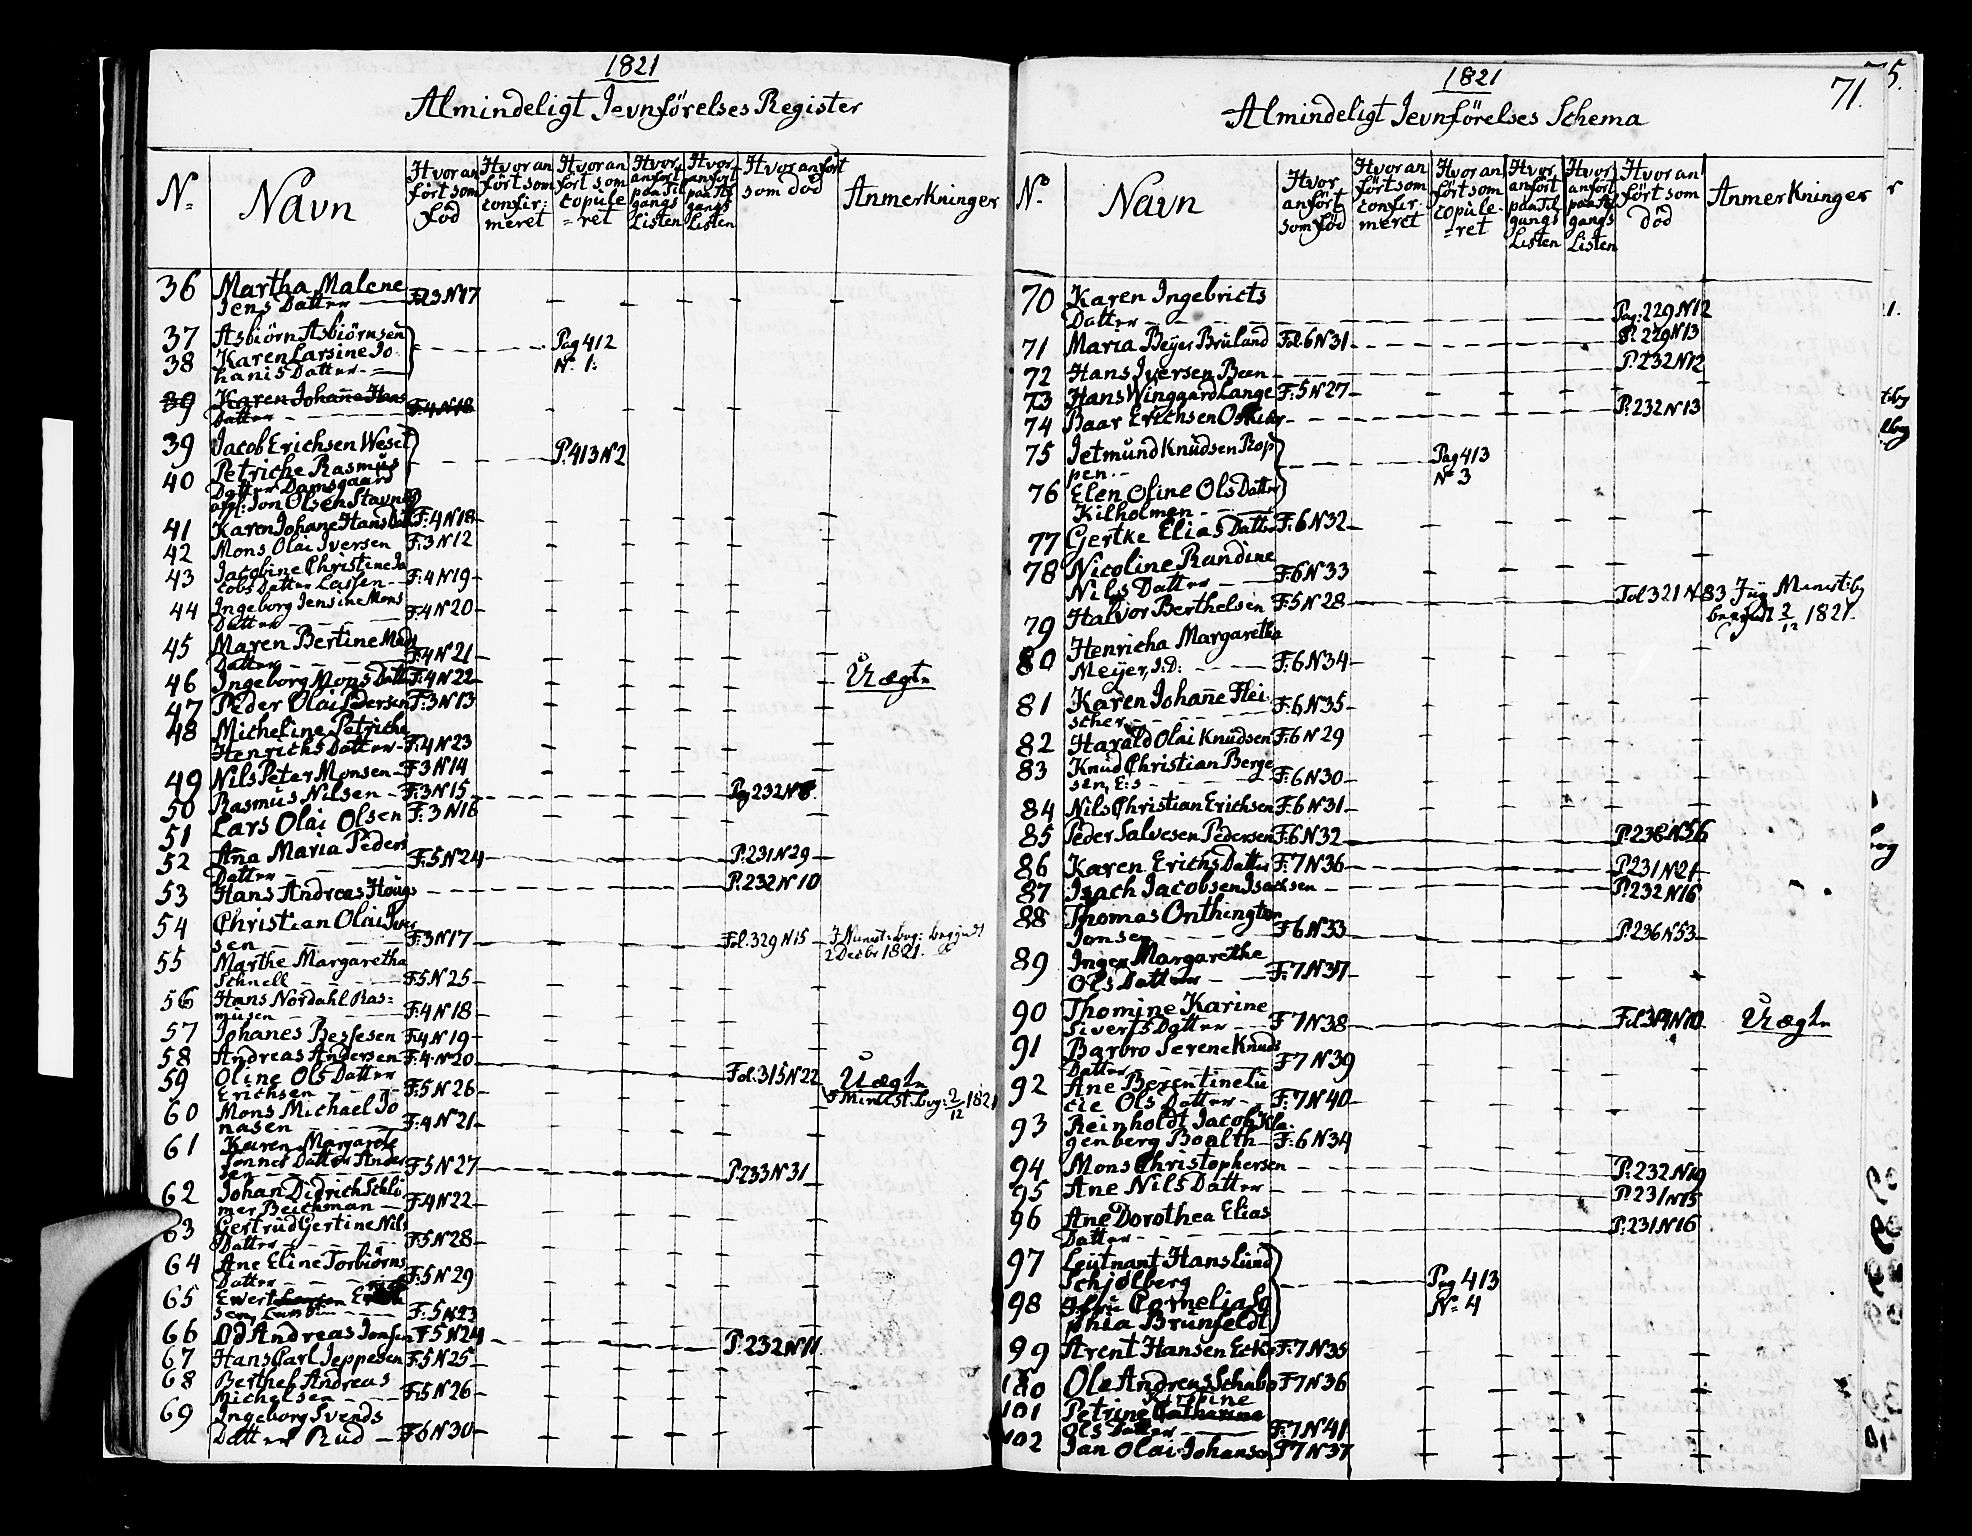 1821
Almindeligt Jevnførelses Register
No
Navn
Hvor an
ført som
fød
Hvor an
ført som
confir:
meret
Hvor an
ført som
copule
=ret
Hvor
anført
paa Til
gangs
Listen
Hvor
anført
paa Af
gangs
Listen
Hvor anført
som død
Anmerkninger
36 Martha Malene
Jens Datter — Fol 3 N 17
37 Asbiörn Asbiörnsen Pag 412
38 Karen Larsine Jo No 1.
hanis Datter
39 Karen Johane Hans
Datter F. 4 N 18
39 Jacob Erichsen Wesel P. 413 N 2
40 Petriche Rasmus
Datter Damsgaard
Jon Olsen Stavnes
41 Karen Johane Hans Dat F: 4 N 18
42 Mons Olai Iversen F: 3 N 12
43 Jacobine Christine Ja
cobs Datter Lassen F: 4 N 19
44 Ingeborg Jensine Mons
Datter F: 4 N 20
45 Maren Bertine Mads
Datter F: 4 N 21
46 Ingeborg Mons Datt F: 4 N 22 Uægte
47 Peder Olai Pedersen F: 3 N 13
48 Micheline Petriche
Henrichs Datter F: 4 N 23
49 Nils Peter Monsen F 3 N 14
50 Rasmus Nilsen F: 3 N 15 Pag 232 N 8
51 Lars Olai Olsen F: 3 N 16
52 Ana Maria Peders
Datter F: 5 N 24 P. 231 N 29
53 Hans Andreas Houg P. 232 N 10
54 Christian Olai Iver
sen F: 3 N 17 Fol. 329 N 15 7 Munst: beg: begyndt
2 Decbr 1821.
55 Marthe Margaretha
Schnell F. 5 N 25
56 Hans Nordahl Ras=
musen F: 4 N 18
57 Johanes Bessesen F: 4 N 19
58 Andreas Andersen F: 4 N 20
59 Oline Ols Datter Fol. 315 N 22 Uægte
Erichsen F: 5 N 26 beg: 2/12 1821
60 Mons Michael Jo
nasen F: 4 N 21
61 Karen Margarete
Tønnes Datter Ander
sen F: 5 N 27 P. 233 N 31
62 Johan Didrich Schlö
mer Beichman F: 4 N 22
63 Gertrud Gertine Nils
Datter F: 5 N 28
64 Ane Eline Torbiörns
Datter F: 5 N 29
65 Ewert
sen F: 5 N 23
66 Od Andreas Jonsen F 5 N 24 P. 232 N 11
67 Hans Carl Jeppesen F: 5 N 25
68 Berthel Andreas
Michelsen F: 5 N 26
69 Ingeborg Svends
Datter Rud F 6 N 30
1821
71.
Almindeligt Jevnförelses Schema
No
Navn
Hvor
anført
som fød
Hvor an
ført som
confir:
meret
Hvor an
ført som
copule
=ret
Hvor
anført
paa Til
gangs
Listen
Hvor
anført
paa Af
gangs
Listen
Hvor an
ført som
død
Anmerkninger
70 Karen Ingebricts
Datter Pag: 229 N 12
71 Maria Beÿer Bruland Fol. 6 N 31 P. 229 N 13
72 Hans Iversen Been P. 232 N 12
73 Hans Winggard Lange F: 5 N 27
74 Baar Erichsen P. 232 N 13
75 Jetmund Knudsen Rop Pag 413
pen No 3
76 Elen Oline Ols Datter
Kilholmen
77 Gertke Elias Datter F: 6 N 32
78 Nicoline Randine
Nils Datter F: 6 N 33
79 Halvor Berthelsen F: 5 N 28 Fol 321 N 83
begyndt 2/12 1821.
80 Henricha Margaretha
Meÿer, J: D: F: 6 N 34
81 Karen Johane Flei
scher F: 6 N 35
82 Harald Olai Knudsen F: 6 N 29
83 Knud Christian Berge
sen, E: s F: 6 N 30
84 Nils Christian Erichsen F: 6 N 31
85 Peder Salvesen Pedersen F: 6 N 32 P. 236 N 56
86 Karen Erichs Datter F: 7 N 36 P. 231 N 21
87 Isach Jacobsen Isachsen P. 232 N 16
88 Thomas Onthington
Jonsen F: 6 N 33 P. 236 N 53
89 Inger Margarethe
Ols Datter F: 7 N 37
90 Thomine Karine
Siverts Datter F 7 N 38 Fol 319 N 10 Uægte
91 Barbro Serene Knuds
Datter F 7 N 39
92 Ane Berentine Lu
cie Ols Datter F: 7 N 40
93 Reinholdt Jacob Kla
genberg Boalth F: 6 N 34
94 Mons Christophersen P. 232 N 19
95 Ane Nils Datter P. 231 N 15
96 Ane Dorothea Elias
Datter P. 231 N 16
97 Leutnant Hans Lund
Schjölberg Pag 413
98 Cornelia So No 4
phia Brunfeldt
99 Arent Hansen Eck F: 7 N 35
100 Ole Andreas Schabo F 7 N 36
Karine
101 Petrine Catharina
Ols Datter F: 7 N 41
102 Jan Olai Johansen F 7 N 37